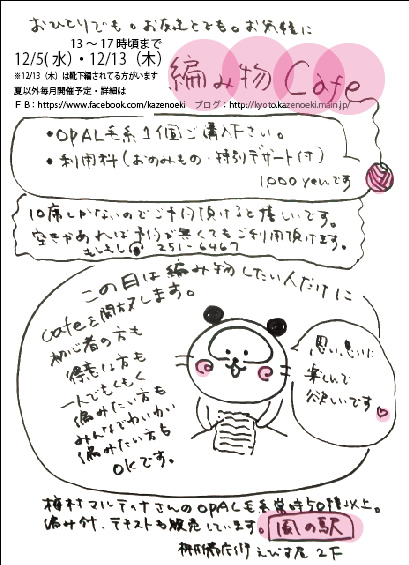 おひとりでも。お友だちとでも。お気軽に
13〜17時頃まで
12/5(水)・12/13（木）
※12/13（木）は靴下編されてる方がいます
夏以外毎月開催予定・詳細は
ＦＢ：https://www.facebook.com/kazenoeki　ブログ：http://kyoto.kazenoeki.main.jp/
編み物Cafe
・OPAL毛糸1個ご購入下さい。
・利用料(おのみもの・特別デザート付)
1000yenです
10席しかないのでご予約頂けると嬉しいです。
空きがあれば予約が無くてもご利用頂けます。
もしもし☎ 251-6467
この日は編み物したい人だけに
cafeを開放します。
初心者の方も
得意な方も
一人でもくもく
編みたい方も
みんなでわいわい
編みたい方も
OKです。
思い思いに
楽しんで
欲しいです
梅村マルティナさんのOPAL毛糸常時50種以上。
編み針、テキストも販売しています。風の駅
えびす屋2F